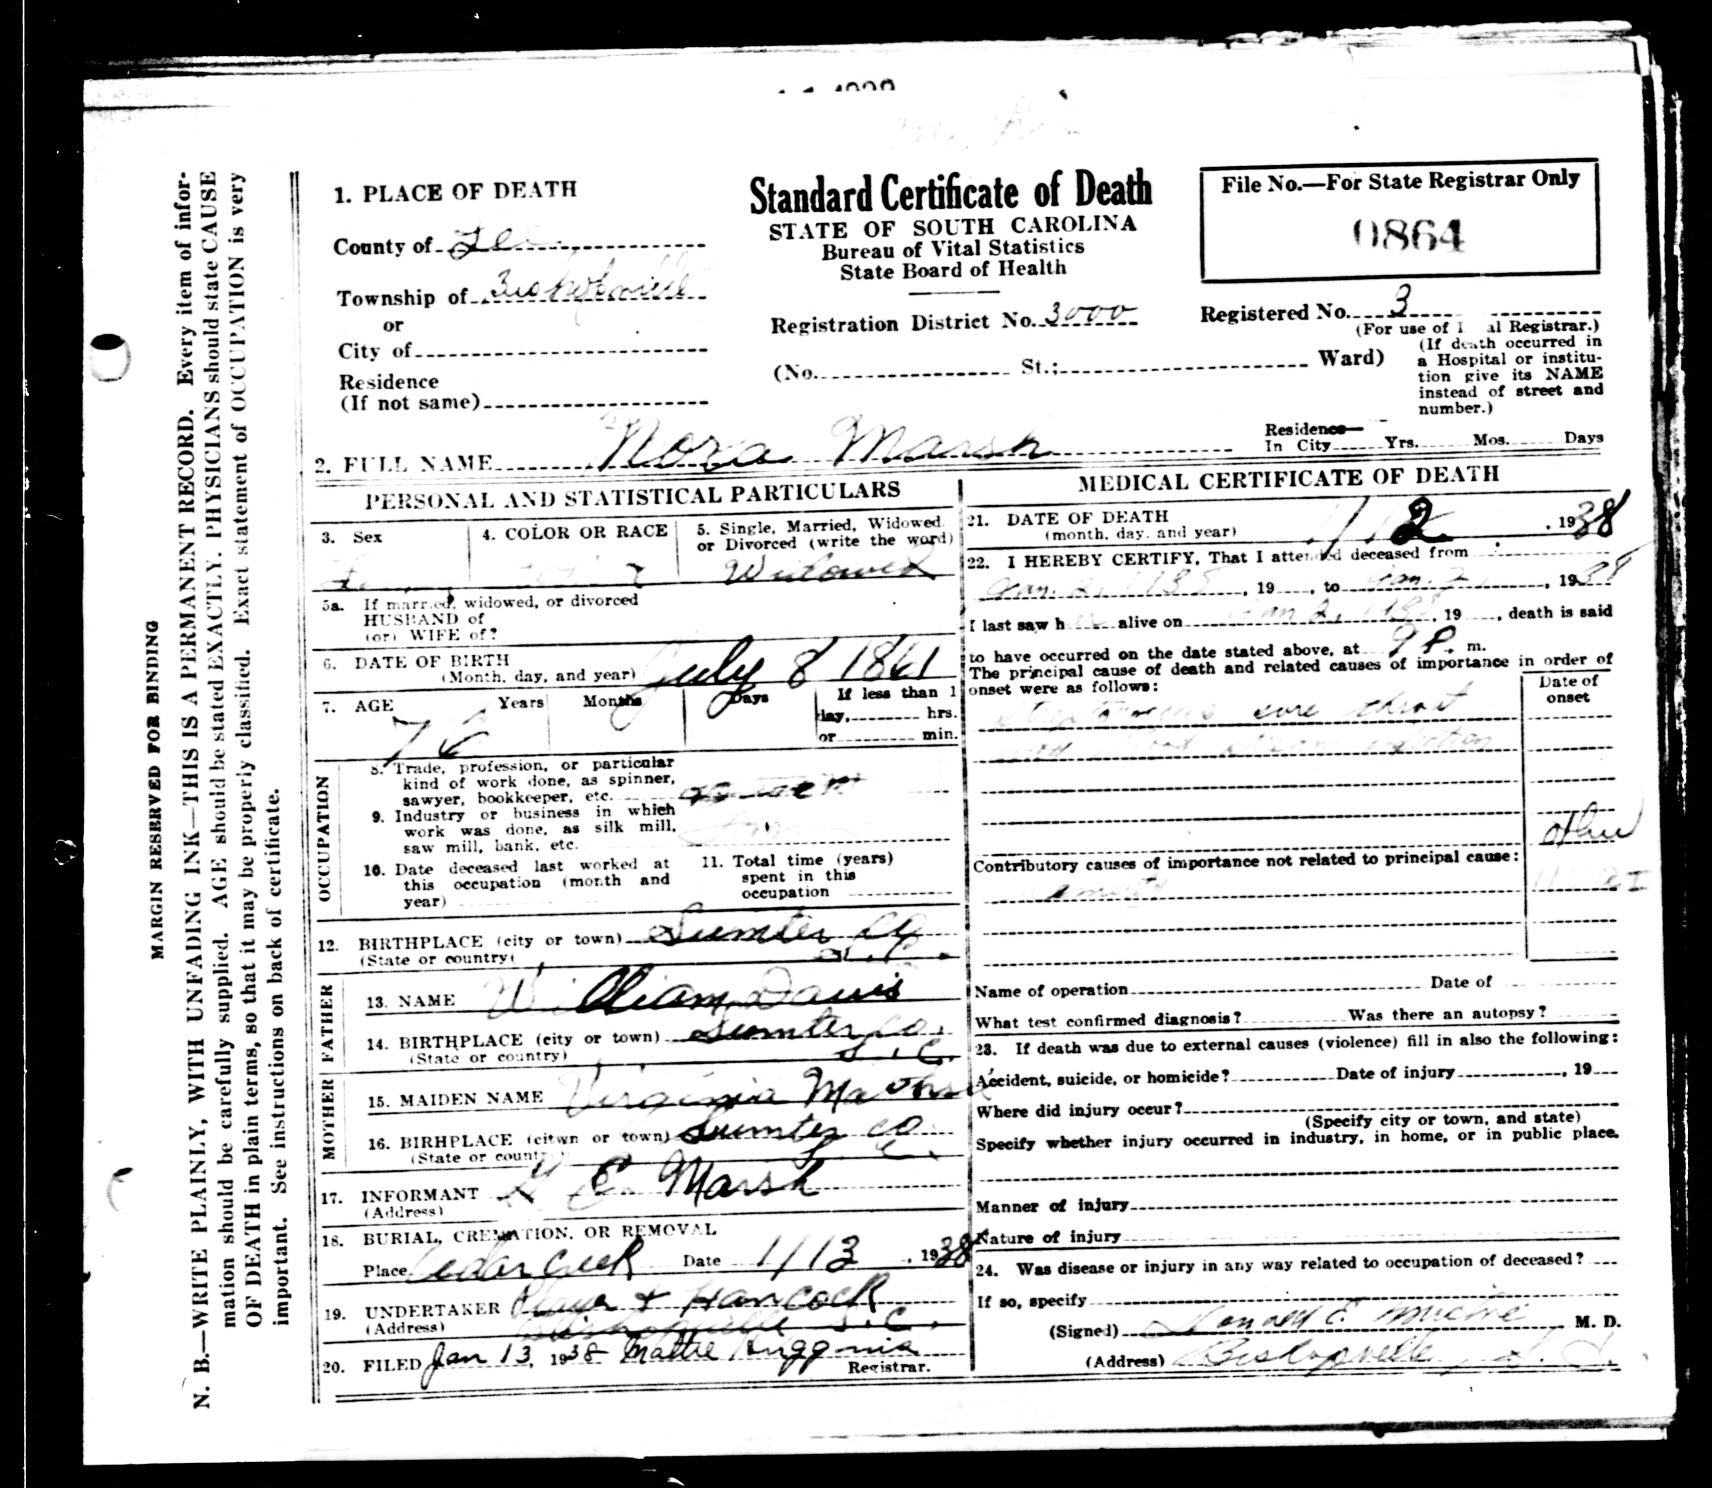 MARGIN RESERVED FOR BINDING
N. B.—WRITE PLAINLY, WITH UNFADING INK—THIS IS A PERMANENT RECORD. Every item of infor-
mation should be carefully supplied. AGE should be stated EXACTLY. PHYSICIANS should state CAUSE
OF DEATH in plain terms, so that it may be properly classified. Exact statement of OCCUPATION is very
important. See instructions on back of certificate.
1. PLACE OF DEATH
County of Lee
Township of Bishopville
or
City of
Residence
(If not same)
Standard Certificate of Death
STATE OF SOUTH CAROLINA
Bureau of Vital Statistics
State Board of Health
Registration District No. 3000
(No. St.; Ward)
File No.—For State Registrar Only
0864
Registered No. 3
(For use of al Registrar.)
(If death occurred in
a Hospital or institu-
tion give its NAME
instead of street and
number.)
2. FULL NAME Nora Marsh
Residence—
In City Yrs. Mos. Days
PERSONAL AND STATISTICAL PARTICULARS
3. Sex
4. COLOR OR RACE
5. Single, Married, Widowed
or Divorced (write the word)
Widowed
5a. If married, widowed, or divorced
HUSBAND of
(or) WIFE of?
6. DATE OF BIRTH
(Month, day, and year) July 8 1861
7. AGE Years Months Days If less than 1
day, hrs.
or min.
76
OCCUPATION
8. Trade, profession, or particular
kind of work done, as spinner,
sawyer, bookkeeper, etc.
9. Industry or business in which
work was done, as silk mill,
saw mill, bank, etc.
10. Date deceased last worked at
this occupation (month and
year)
11. Total time (years)
spent in this
occupation
12. BIRTHPLACE (city or town) Sumter Co
(State or country) S.C.
FATHER
13. NAME William Davis
14. BIRTHPLACE (city or town) Sumter Co.
(State or country) S.C.
MOTHER
15. MAIDEN NAME Virginia
16. BIRHPLACE (citwn or town) Sumter Co
(State or country) S.C.
17. INFORMANT E. Marsh
(Address)
18. BURIAL, CREMATION, OR REMOVAL
Place Cedar Creek Date 1/13, 1938
19. UNDERTAKER Player & Hancock
(Address) Bishopville S.C.
20. FILED Jan 13, 1938 Mattie Huggins
Registrar.
MEDICAL CERTIFICATE OF DEATH
21. DATE OF DEATH
(month, day, and year) 1/12, 1938
22. I HEREBY CERTIFY, That I attended deceased from
Jan. 2, 1938, 19 , to Jan. 2, 1938
I last saw h alive on Jan 2, 1938, 19 , death is said
to have occurred on the date stated above, at 9 P. m.
The principal cause of death and related causes of importance in order of
onset were as follows:
Date of
onset
Streptococcus sore throat
and blood stream infection
other
Contributory causes of importance not related to principal cause:
Name of operation Date of
What test confirmed diagnosis? Was there an autopsy?
23. If death was due to external causes (violence) fill in also the following:
Accident, suicide, or homicide? Date of injury , 19
Where did injury occur?
(Specify city or town, and state)
Specify whether injury occurred in industry, in home, or in public place.
Manner of injury
Nature of injury
24. Was disease or injury in any way related to occupation of deceased?
If so, specify
(Signed) Donald E. M. D.
(Address) Bishopville, S.C.